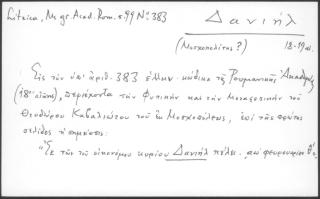 Litzica, Ms gr. Acad. Rom. σ. 99 Nº 383
Δανιήλ
(Μοσχοπολίτης ?) 18-19 αι.
Εἰς τὸν ὑπ' ἀριθ. 383 ἑλλην. κώδικα τῆς Ρουμανικῆς Ἀκαδημίας
(18ου αἰῶνος), περιέχοντα τὴν Φυσικὴν καὶ τὴν Μεταφυσικὴν τοῦ
Θεοδώρου Καβαλιώτου τοῦ ἐκ Μοσχοπόλεως, ἐπὶ τῆς πρώτης
σελίδος ἡ σημείωσις:
"Ἐκ τῶν τοῦ οἰκονόμου κυρίου Δανιήλ πέλει. φευρουαρίου θ'